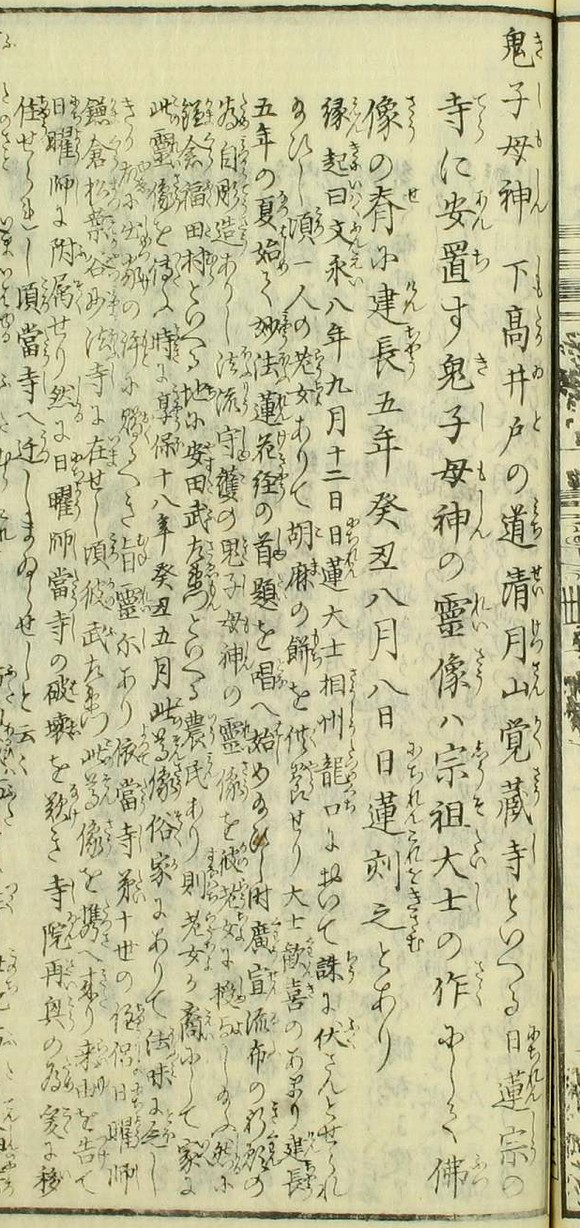 鬼子母神 下高井戸の道清月山覚蔵寺といへる日蓮宗の
寺に安置す鬼子母神の靈像ハ宗祖大士の作にして佛
像の脊に建長五年癸丑八月八日日蓮刻之とあり
縁起曰文永八年九月十二日日蓮大士相州龍口において誅に伏さんとせられ
給ひし頃一人の老女ありて胡麻の餅を供養せり大士歓喜のあまり建長
五年の夏始て妙法蓮花経の首題を唱へ始め給ひし時廣宣流布の祈願の
為自彫造ありし法流守護の鬼子母神の靈像を彼老女に授与し給ふ然に
鎌倉福田村といへる地に安田武左衛門といへる農民あり則老女か裔にして家に
此靈像を傳ふ時に享保十八年癸丑五月此尊像俗家にありて法味に乏し
き故に当寺第十世の住侶日曜師
鎌倉松葉谷妙法寺に在せし頃彼武左衛門此尊像を携へ来り来由を告て
日曜師に附属せり然に日曜師當寺の破壊を歎き寺院再興の為爰に移
住せられし頃當寺へ迁しまゐらせしと云々